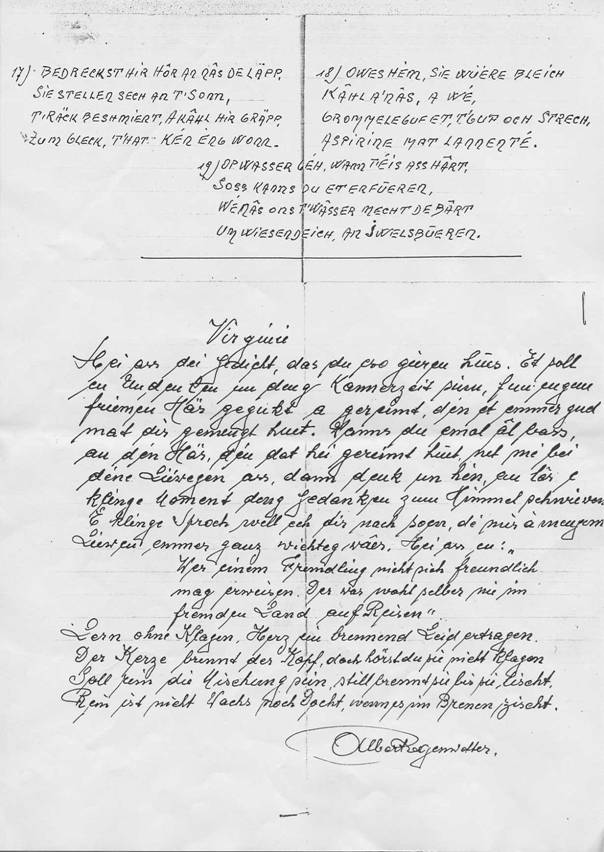 17) BEDRECKST HIR HÔR AN NÂS DE LÄPP,
SIE STELLEN SECH AN T'SONN,
T'RÄCK BESHMIERT, A KÄHL HIR GRÄPP,
ZUM GLECK, T'HAT KÉR ÈRG WONN.
18) OWES HÈM, SIE WÜERE BLEICH
KÄHL A'NÂS, A WÉ,
GROMMELEGUFET, T'GUF OCH STRECH,
ASPIRINE MAT LANNENTÉ.
19) OP WASSER GÉH, WANN TÉIS ASS HÄRT,
SOSS KANNS DU ET ERFÜEREN,
WÉ NÂS ONS T'WÄSSER MECHT DE BÄRT
UM WIESENDEICH, AN ŚWELSBÜEREN.
Virginie
Hei ass dei Gedicht, das du eso gieren hues. Et soll
en Undenken un deng Kannerzeit sinn, fun engem
friemen Här gegukt a gereimt, dén et emmer gud
mat dir gemengt huet. Kanns du emal âl bass,
an dén Här, dén dat hei gereimt huet, net mé bei
déne Liewegen ass, dann denk un hien, an lös e
klinge Moment deng Gedanken zum Himmel schwiewen
E klinge Sproch, well ech dir nach soen, dé mir a mengem
Liewen emmer ganz wichteg wäer. Hei ass en: „
Wer einem Fremdling nicht sich freundlich
mag erweisen. Der war wohl selber nie im
fremden Land auf Reisen"
Lern ohne Klagen, Herz ein brennend Leid ertragen.
Der Kerze brennt der Kopf, doch hörst du sie nicht klagen
Soll rein die Mischung sein, still brennt sie bis sie lischt,
Rein ist nicht Wachs noch Docht, wenn es im Brenen zischt.
Albert Regenwetter.